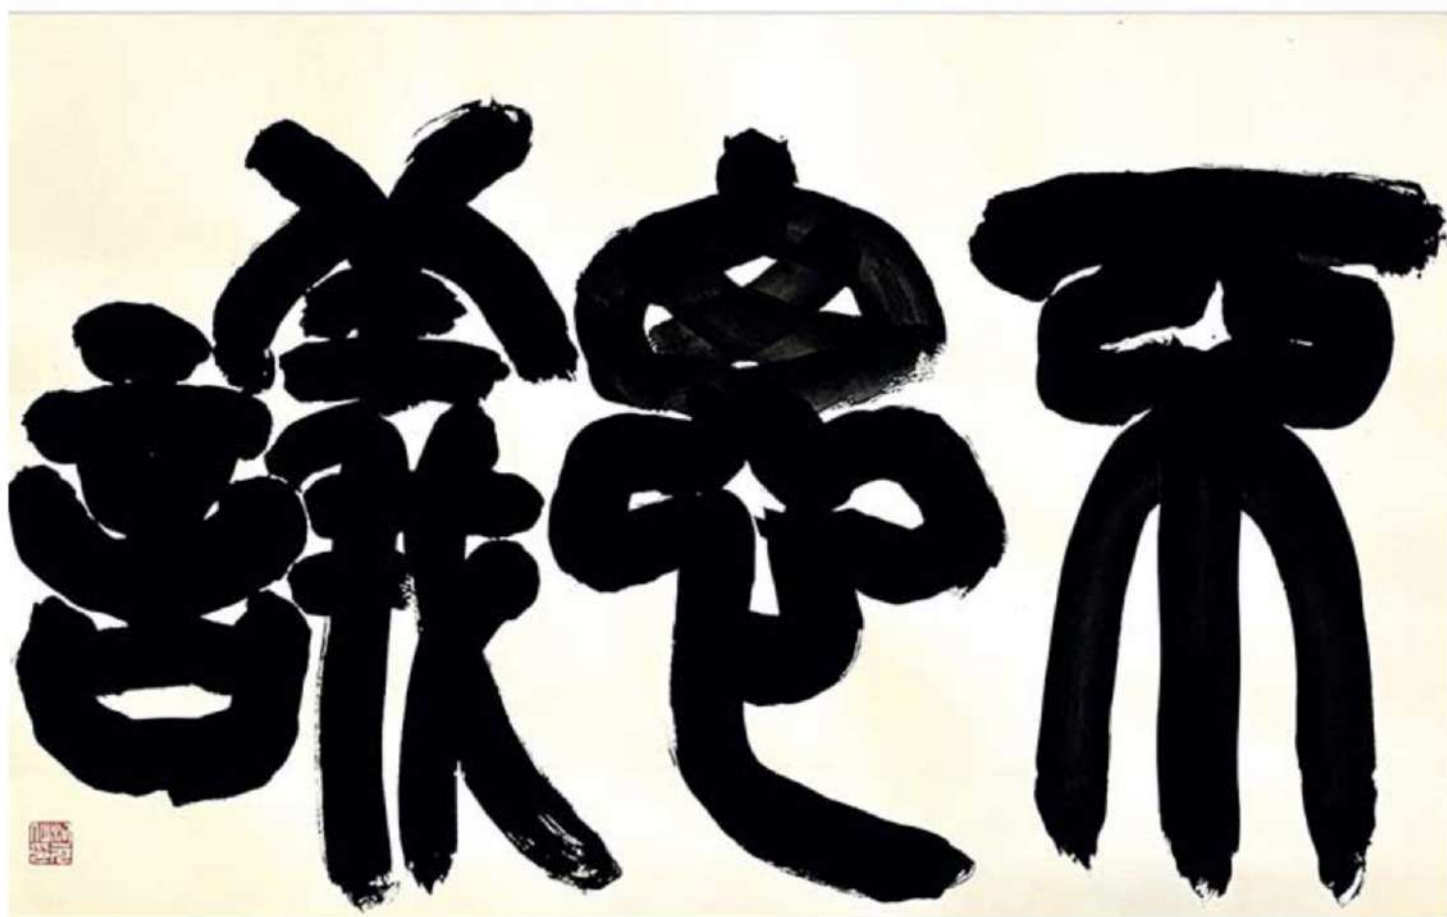 不思議